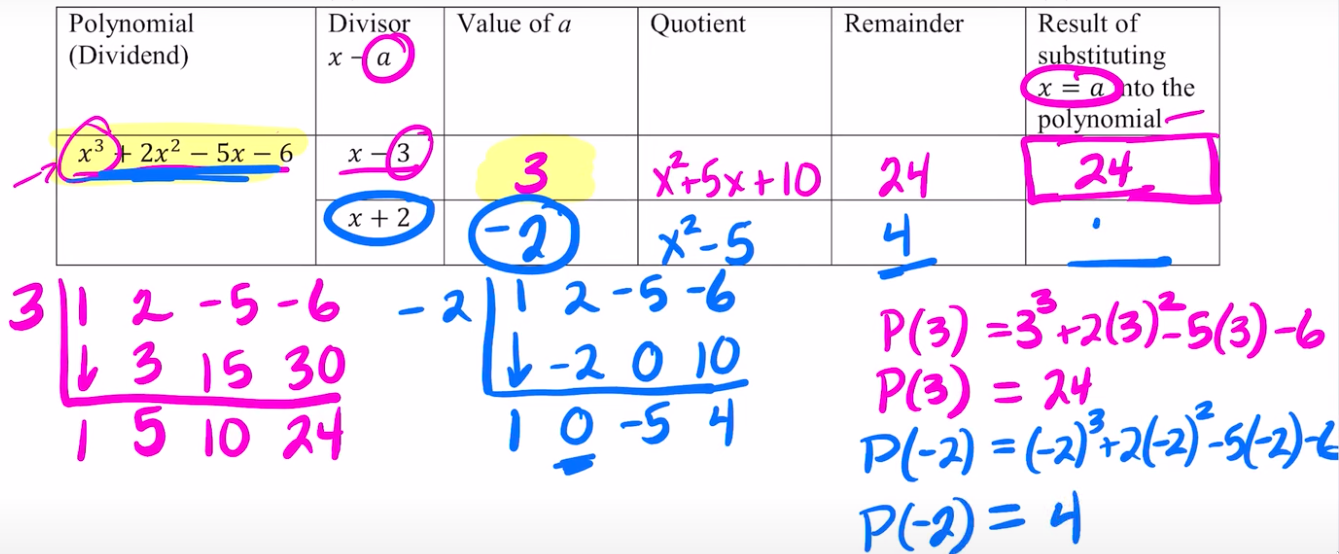 Polynomial (Dividend) | Divisor x − a | Value of a | Quotient | Remainder | Result of substituting x = a into the polynomial
x³ + 2x² − 5x − 6 | x − 3 | 3 | x²+5x+10 | 24 | 24
x + 2 | -2 | x²-5 | 4
3 | 1 2 -5 -6
↓ 3 15 30
1 5 10 24
-2 | 1 2 -5 -6
↓ -2 0 10
1 0 -5 4
P(3) = 3³+2(3)²-5(3)-6
P(3) = 24
P(-2) = (-2)³+2(-2)²-5(-2)-6
P(-2) = 4